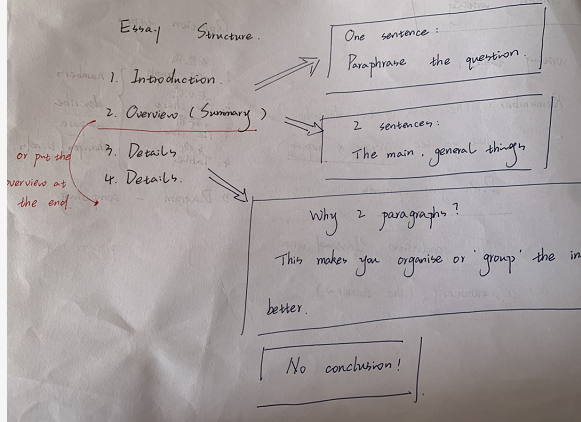 Essay Structure.
1. Introduction.
2. Overview (Summary)
3. Details
4. Details.
or put the
overview at
the end
One sentence:
Paraphrase the question.
2 sentences:
The main, general things
Why 2 paragraphs?
This makes you organise or 'group' the in
better.
No conclusion!